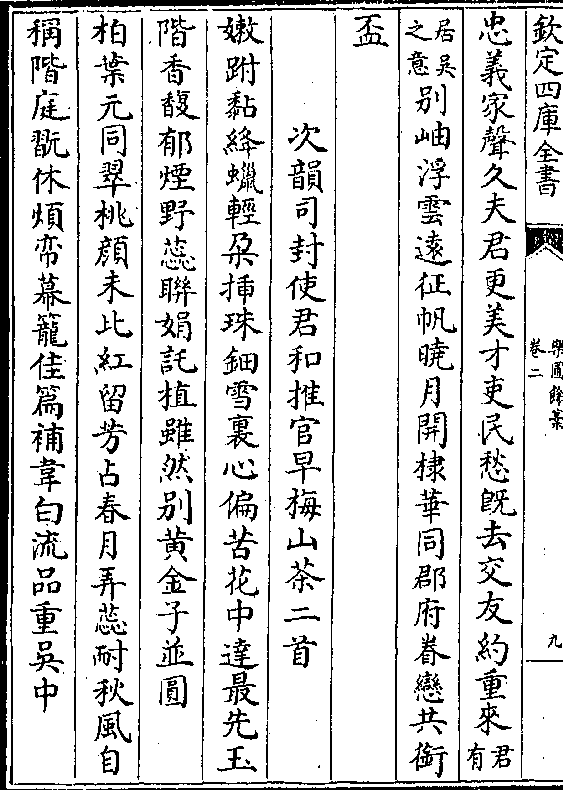 欽定四庫全書
樂圃餘藁
卷二
九
忠義家聲久夫君更美才吏民愁旣去交友約重來君有
居吳之意别岫浮雲遠征帆曉月開棣華同郡府眷戀共銜
盃
次韻司封使君和推官早梅山茶二首
嫩跗黏絳蠟輕朶揷珠鈿雪裏心偏苦花中達最先玉
階香馥郁煙野蕊聯娟託植雖然别黄金子並圓
柏葉元同翠桃顔未比紅留芳占春月弄蕊耐秋風自
稱階庭翫休煩帟幕籠佳篇補韋白流品重吳中